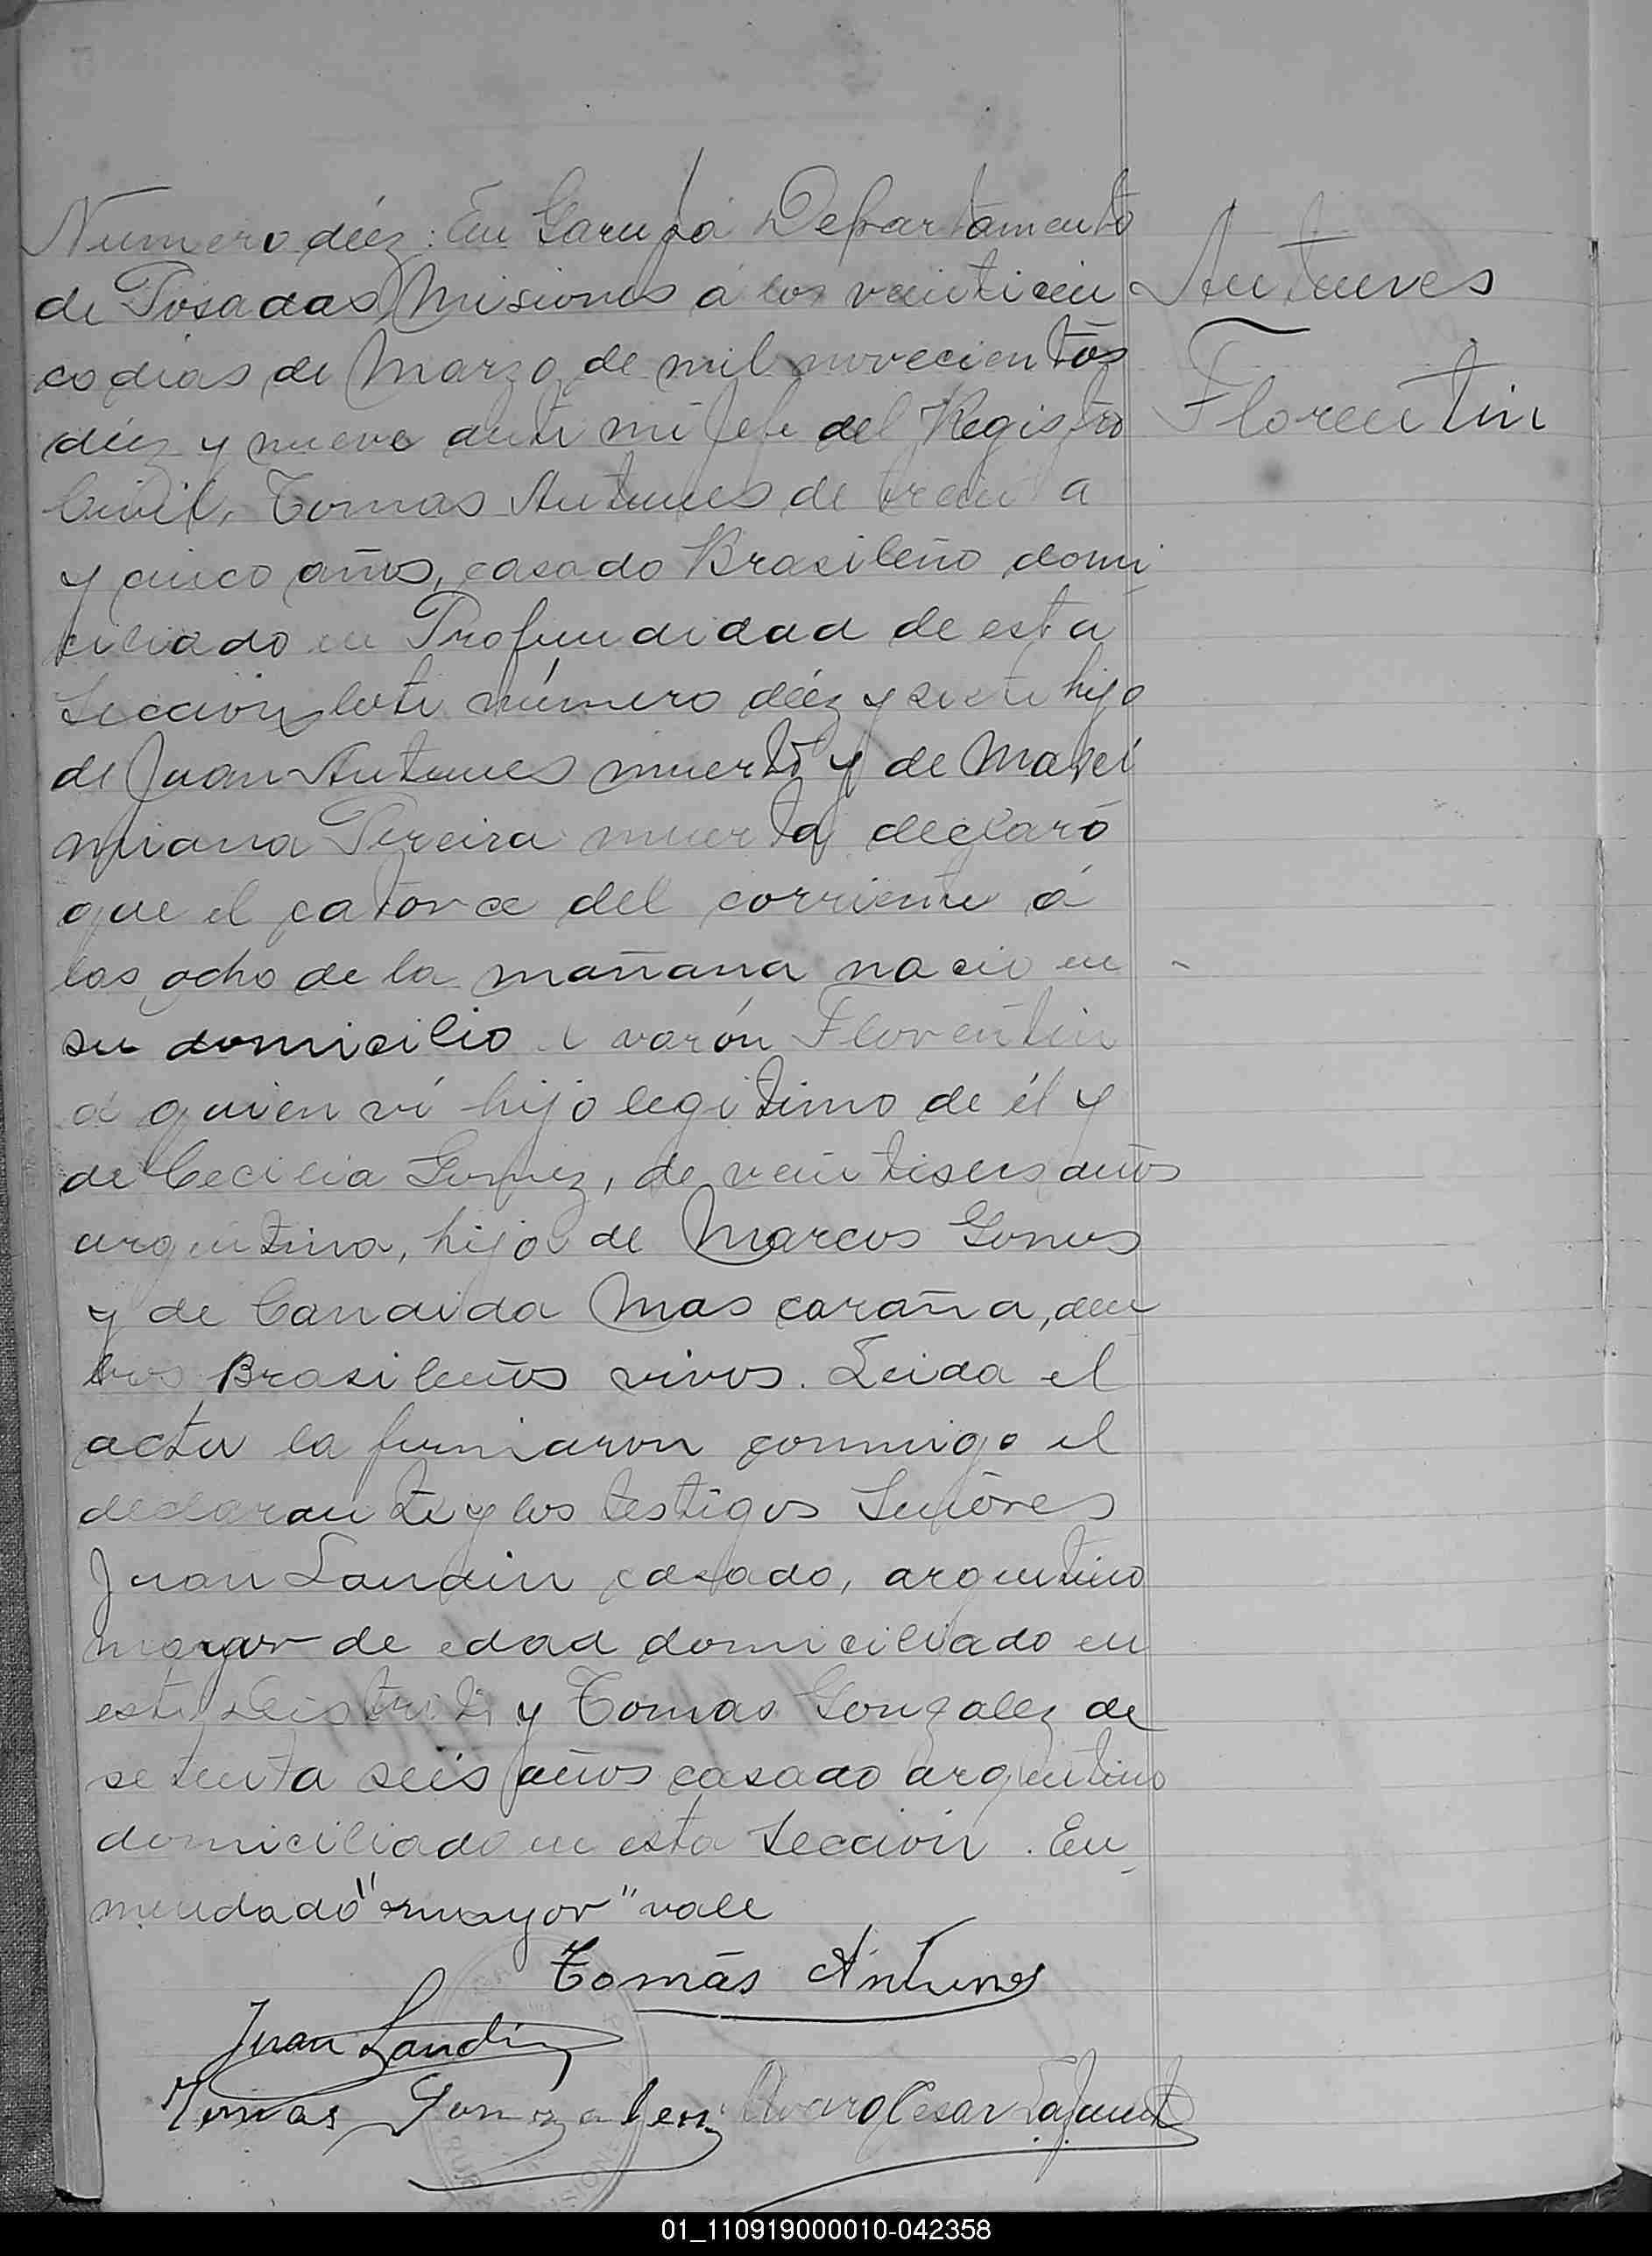 Numero diéz: En Garupá Departamento
de Posadas, Misiones á los veinticin
co dias de Marzo de mil novecientos
diéz y nueve ante mi Jefe del Registro
Civil, Tomas Antunes de treinta
y cinco años, casado Brasileño domi
ciliado en Profundidad de esta
Sección lote número diéz y siete hijo
de Juan Antunes muerto y de Maxi
miana Pereira muerta, declaró
que el catorce del corriente á
las ocho de la mañana nacio en
su domicilio el varón Florentin
á quien ví hijo legitimo de él y
de Cecilia Gomez, de veintiseis años
argentina, hija de Marcos Gomes
y de Candida Mascaraña, am
bos Brasileños vivos. Leida el
acta la firmaron conmigo el
declarante y los testigos Señores
Juan Landin casado, argentino
mayor de edad domiciliado en
este distrito y Tomas Gonzalez de
setenta seis años casado argentino
domiciliado en esta Sección. En
mendado "mayor" vale
Tomás Antunes
Juan Landin
Tomas Gonzalez Alvaro Cesar
Antunes
Florentin
01_110919000010-042358